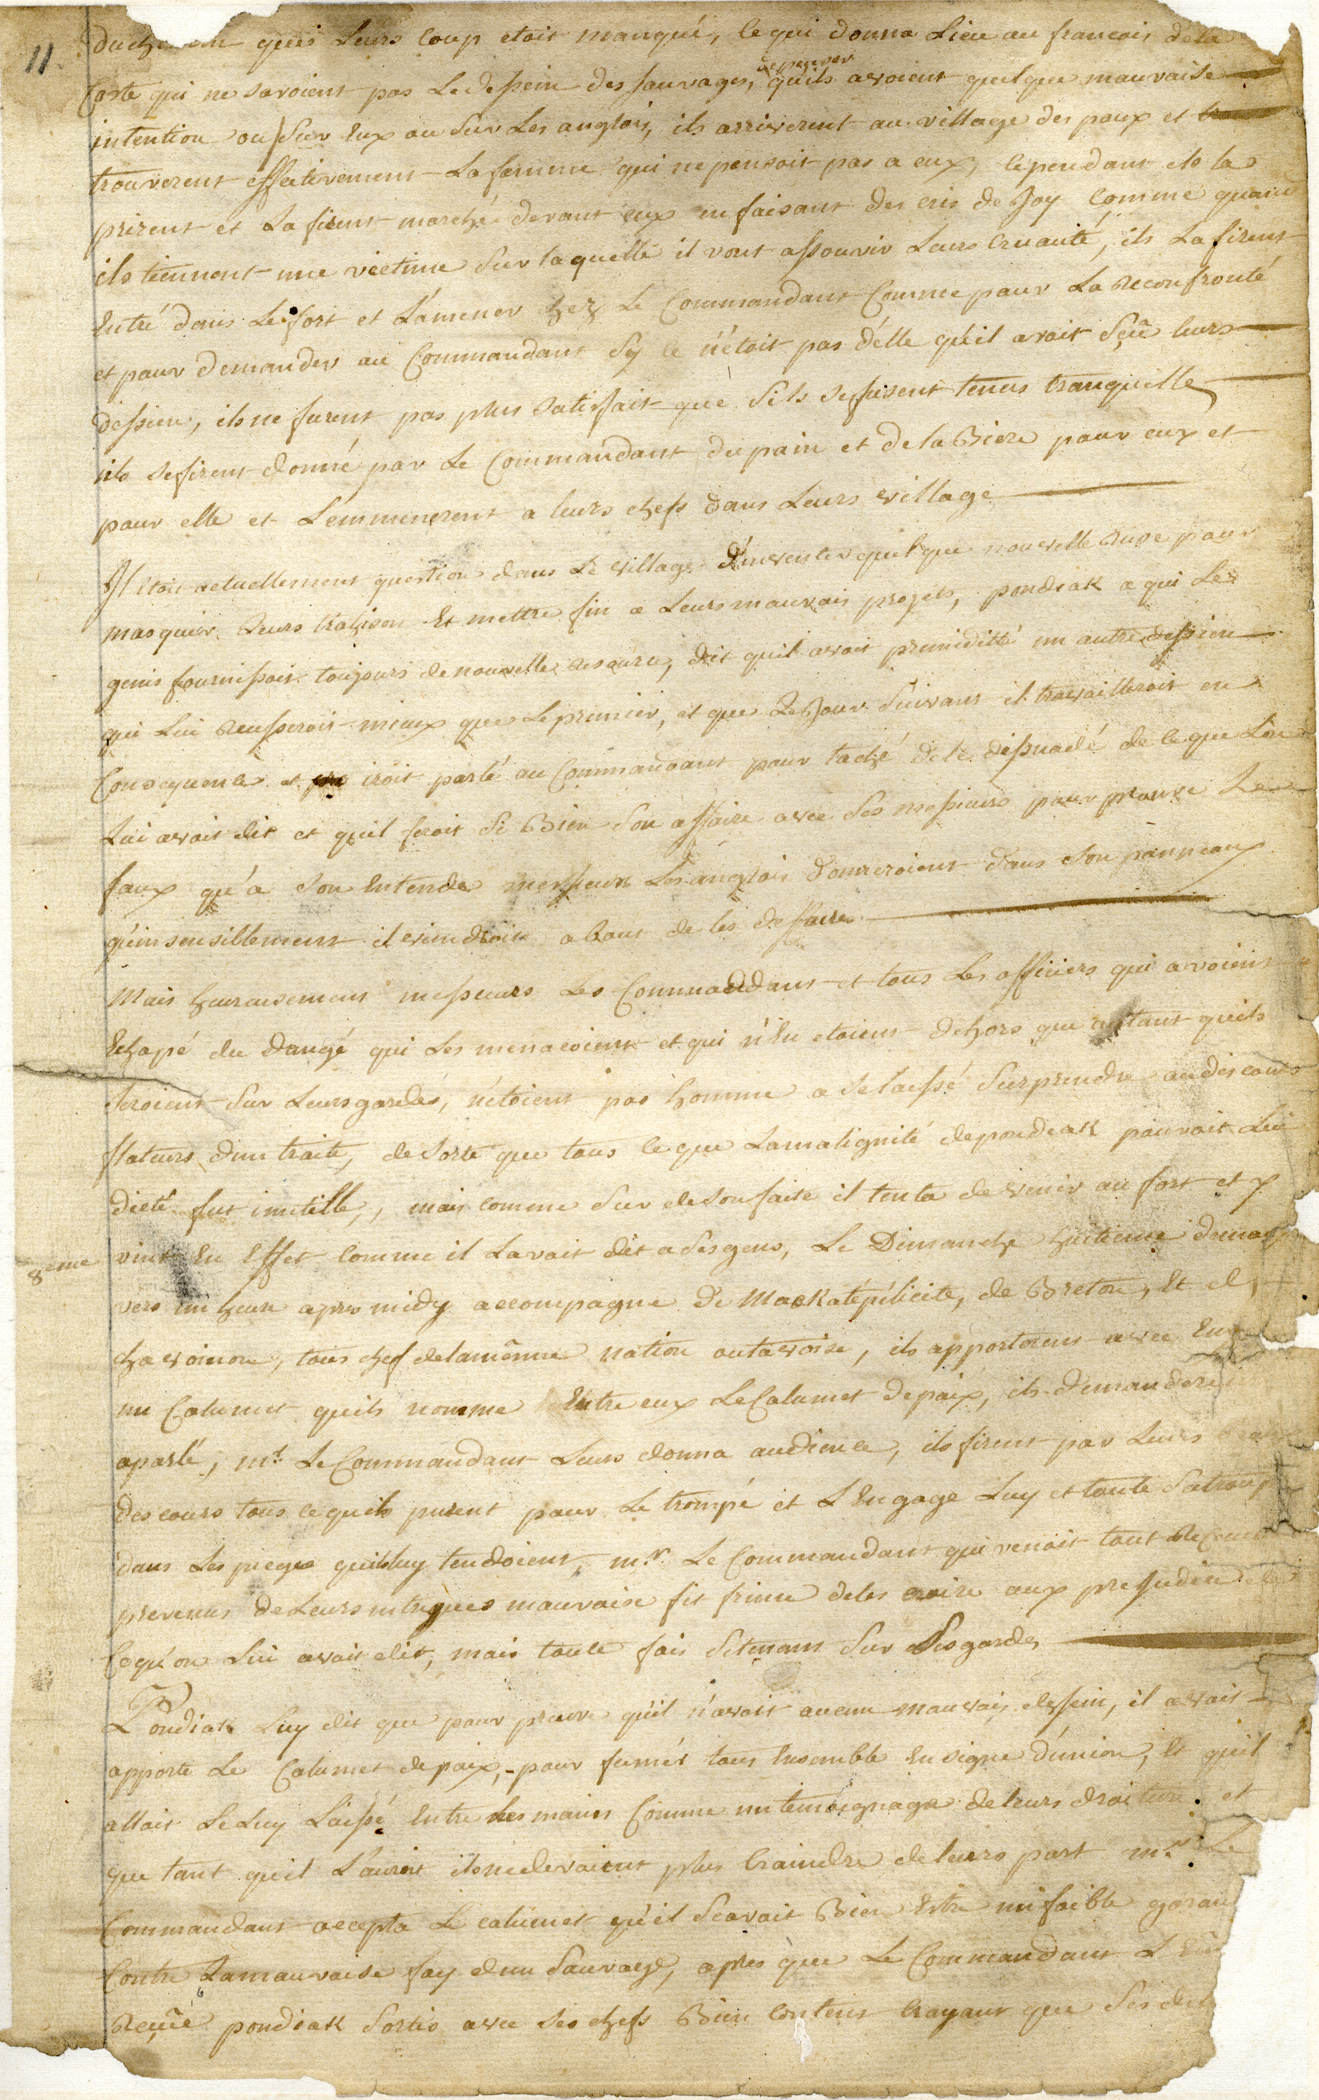 11.
quis Leurs Coup etoit manqué, ce qui donna Lieu au francois de la
Coste qui ne savoient pas Le dessein des sauvages, de penser quils avoient quelque mauvaise
intention ou sur Eux ou sur Les anglois, ils arriverent au village des poux et
trouverent effectivement La femme qui ne pensoit pas a eux, cependant ils la
prirent et La firent marché devant eux en faisant des cris de Joy Comme quand
ils tiennent une victime sur laquelle il vont assouvir Leurs Cruauté, ils La firent
Entré dans Le fort et L'amener chez Le Commandant Comme pour La Reconfronté
et pour demander au Commandant sy ce n'étoit pas d'élle qu'il avoit sçü leurs
dessien, ils ne furent pas plus satisfait que sils se fusent tenus tranquille
ils se firent donné par Le Commandant du pain et de la Biere pour eux et
pour elle et L'emmenerent a leurs chefs dans Leurs village
Il étoit actuellement question dans Le village d'inventer quelque nouvelle Ruse pour
masquier Leurs trahison Et mettre fin a Leurs mauvais projets, pondiak a qui Le
genis fournissoit toujours de nouvelle resource, dit qu'il avoit premiditté un autre dessien
qui Lui Reusseroit mieux que Le premier, et que Le Jour suivant il travailleroit en
Consequence et iroit parlé au Commandant pour taché de le dissuadé de ce que L'on
Lui avoit dit et qu'il feroit si Bien son affaire avec ses messieurs pour prouve Le
faux qu'a son Entende messieurs Les anglois donneroient dans son panneaux
qu'insensiblement il viendroit a bout de les deffaire
Mais heureusement messieurs Les Commandant et tous Les officiers qui avoient
Echapé du dangé qui Les menacoient et qui n'En etoient dehors que autant quils
seroient sur Leurs gardes, n'étoient pas homme a se laissé surprendre au discours
flateurs d'un traite, de sorte que tous ce que La malignité de pondiak pouvoit Lui
dicté fut inutille, mais comme sur de son faite il tenta de venir au fort et y
8eme vint En Effet Comme il L'avoit dit a ses gens, Le Dimanche huitieme de may
vers un heure apres midy accompagne de Mackatépélicite, de Breton, Et d
chavoinon, tous chef de la même nation outavoise, ils apporterent avec
un Calumet quils nomme Entre eux Le Calumet de paix, ils demanderent
a parlé, mr. Le Commandant Leurs donna audience, ils firent par Leurs
descours tous ce quils purent pour Le trompé et L'Engage Luy et toute sa troup
dans Les pieges quils luy tendoient, mr. Le Commandant qui venoit tout
prevenus de Leurs intrigues mauvaise fit frime de les croire aux prejudice
Ce qu'on Lui avoit dit, mais toute fois se tenant sur ses gardes
Pondiak Luy dit que pour preuve qu'il n'avoit aucun mauvais dessein, il avoit
apporté Le Calumet de paix, pour fumér tous Ensemble En signe d'union, Et qu'il
alloit Le Luy Laissé Entre Les mains Comme un temoignage de leurs droiture. et
que tant qu'il L'auroit ils ne devoient plus Craindre de leurs part mr. Le
Commandant accepta Le calumet qu'il scavoit Bien Estre un foible garan
Contre La mauvaise foy d'un sauvage, apres que Le Commandant L'Eü
Reçüe pondiak sortis avec ses chefs Bien Content Croyant que ses